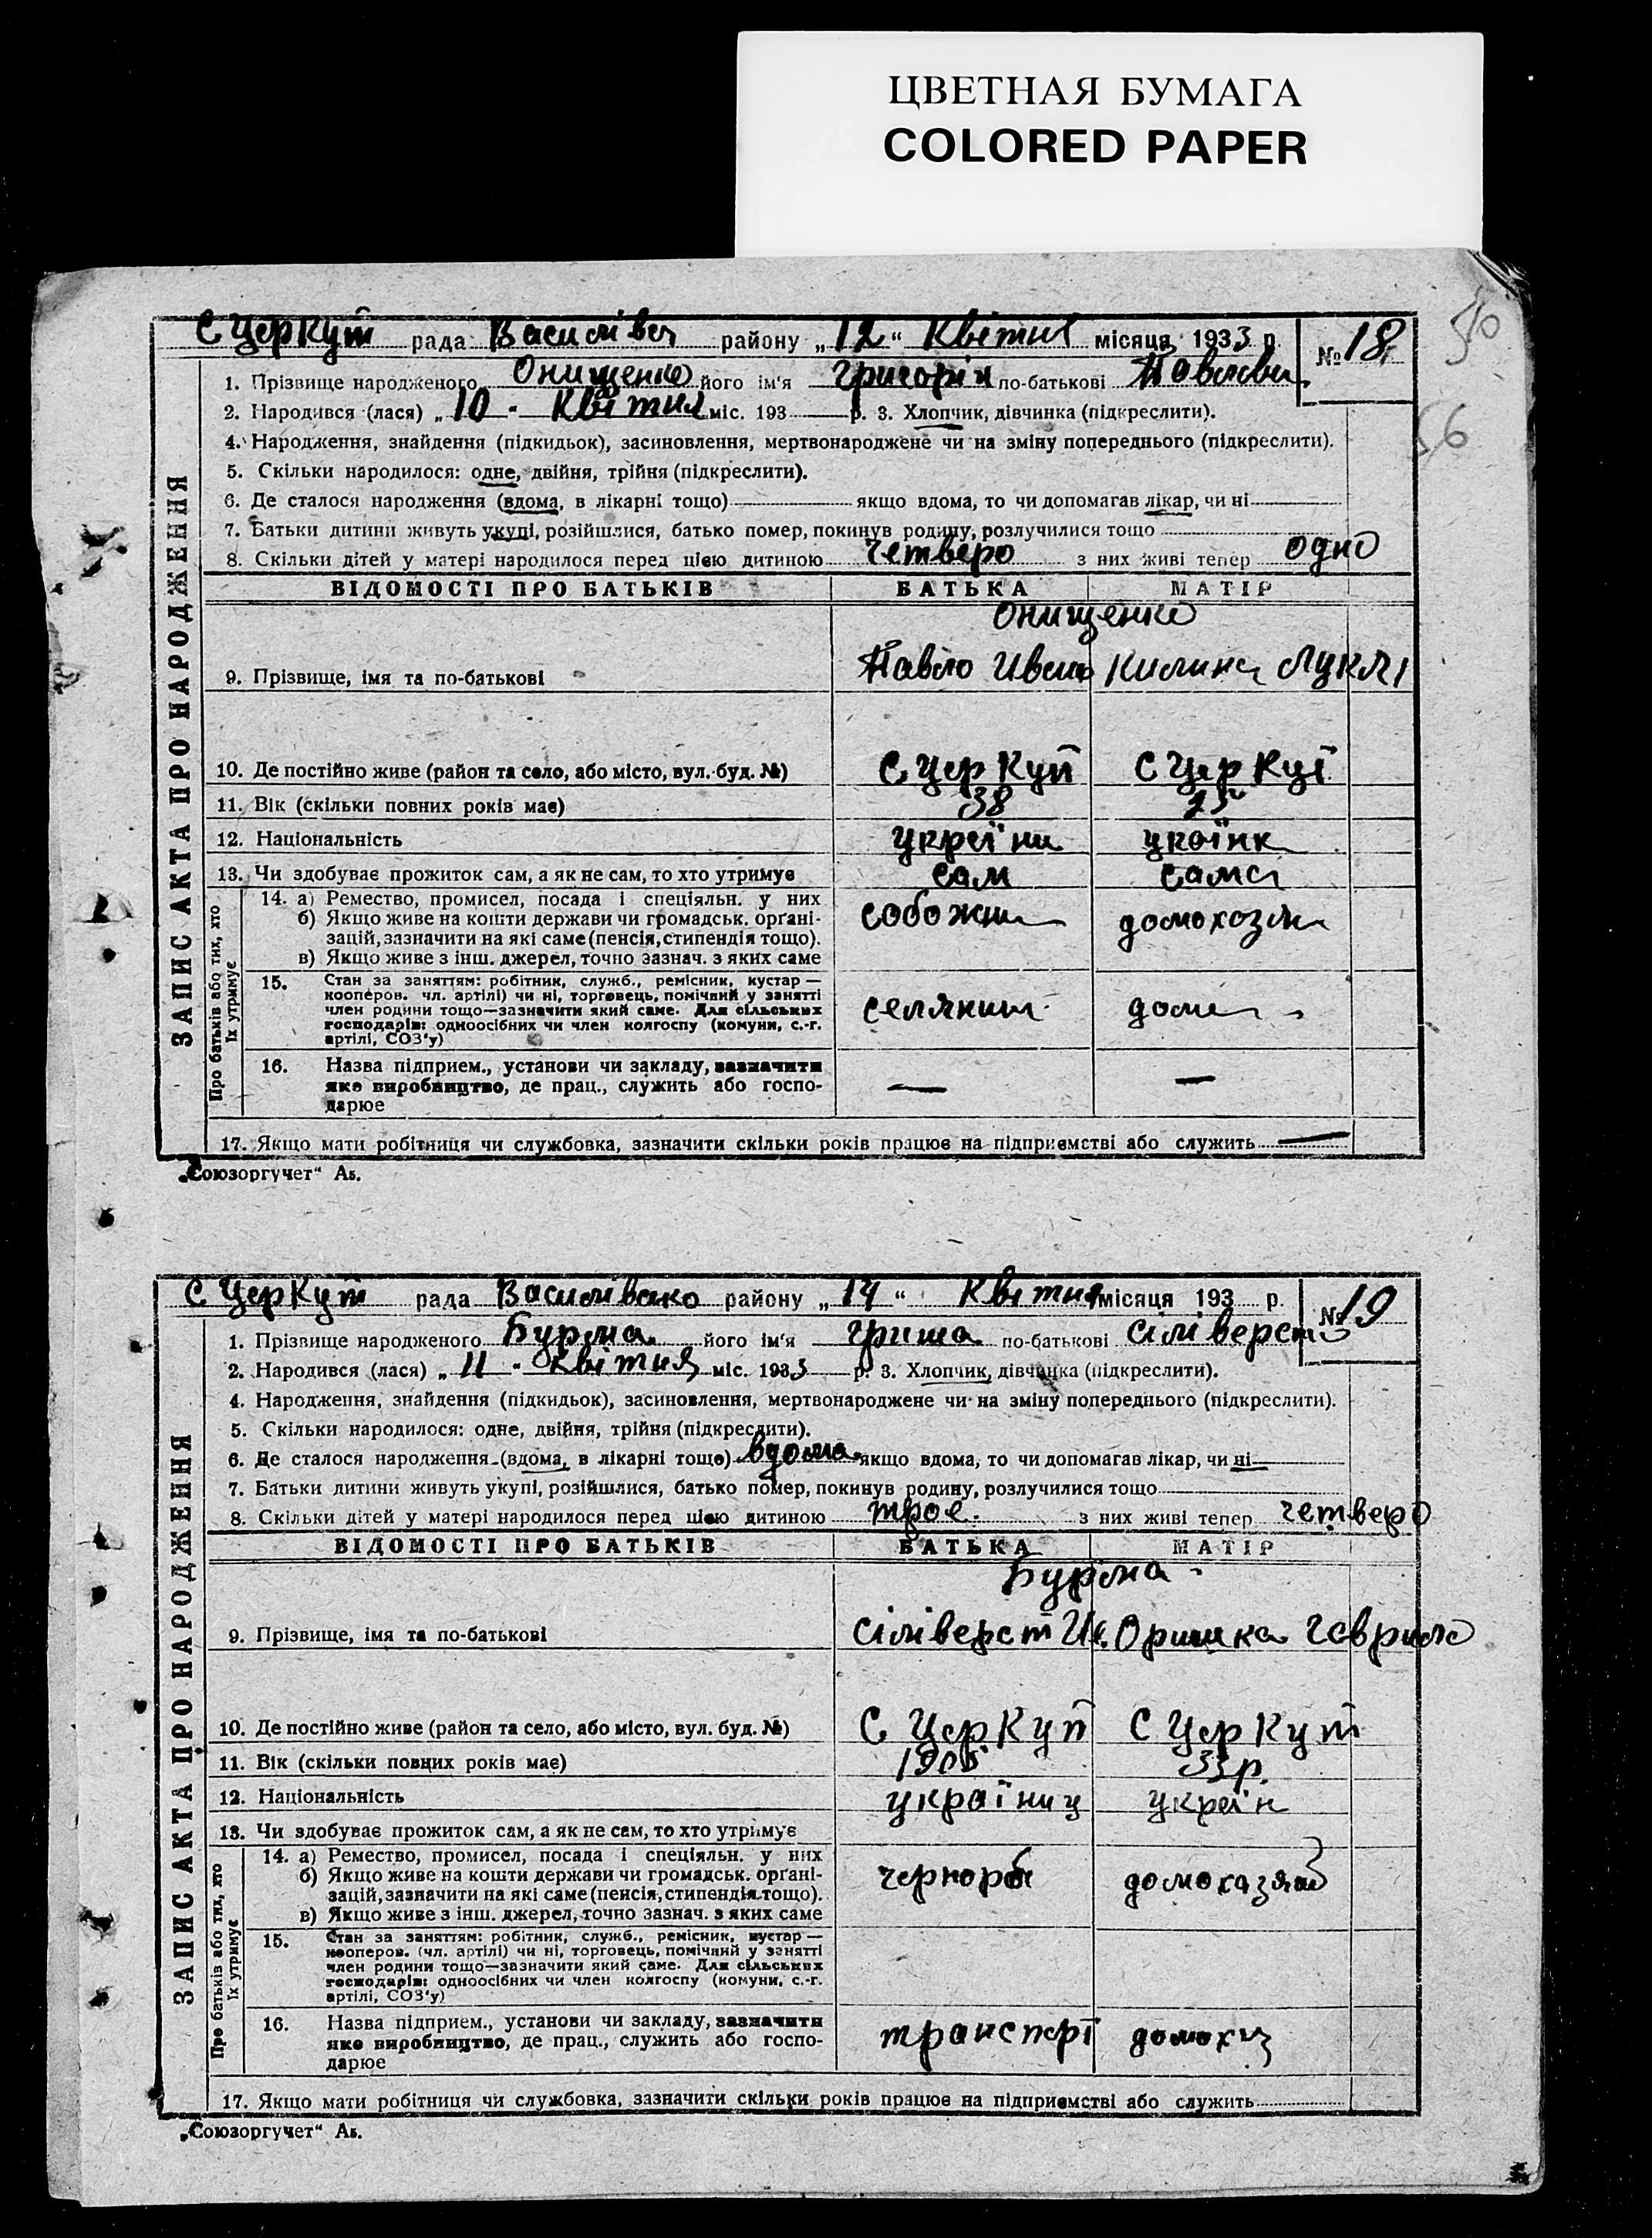 ЦВЕТНАЯ БУМАГА
COLORED PAPER
510
56
С Церкут рада Василівсь району „12“ Квітня місяця 1933 р. № 18
1. Прізвище народженого Онищенко його ім'я Григорій по-батькові Павлови
2. Народився (лася) „10 - Квітня міс. 193 р. 3. Хлопчик, дівчинка (підкреслити).
4. Народження, знайдення (підкидьок), засиновлення, мертвонароджене чи на зміну попереднього (підкреслити).
5. Скільки народилося: одне, двійня, трійня (підкреслити).
6. Де сталося народження (вдома, в лікарні тощо) якщо вдома, то чи допомагав лікар, чи ні
7. Батьки дитини живуть укупі, розійшлися, батько помер, покинув родину, розлучилися тощо
8. Скільки дітей у матері народилося перед цією дитиною четверо з них живі тепер одно
ЗАПИС АКТА ПРО НАРОДЖЕННЯ
ВІДОМОСТІ ПРО БАТЬКІВ БАТЬКА МАТІР
Онищенко
9. Прізвище, імя та по-батькові Павло Иван Килина Лукя
10. Де постійно живе (район та село, або місто, вул. буд. №) С Церкут С Церкут
11. Вік (скільки повних років має) 38 25
12. Національність україни україїнк
13. Чи здобуває прожиток сам, а як не сам, то хто утримує сам сама
Про батьків або тих, хто їх утримує
14. а) Ремество, промисел, посада і спеціяльн. у них
б) Якщо живе на кошти держави чи громадськ. орґані-
зацій, зазначити на які саме (пенсія, стипендія тощо).
в) Якщо живе з інш. джерел, точно зазнач. з яких саме
домохозяи
15. Стан за заняттям: робітник, служб., ремісник, кустар —
кооперов. чл. артілі) чи ні, торговець, помічний у занятті
член родини тощо—зазначити який саме. Для сільських
господарів: одноосібних чи член колгоспу (комуни, с.-г.
артілі, СОЗ'у)
селянин
16. Назва підприєм., установи чи закладу, зазначити
яке виробництво, де прац., служить або госпо-
дарює
— —
17. Якщо мати робітниця чи службовка, зазначити скільки років працює на підприємстві або служить —
„Союзоргучет“ Аб.
С Церкут рада Василівсько району „14“ Квітня місяця 193 р. № 19
1. Прізвище народженого Бурма його ім'я Гриша по-батькові Сіліверст
2. Народився (лася) „11 - Квітня міс. 1933 р. 3. Хлопчик, дівчинка (підкреслити).
4. Народження, знайдення (підкидьок), засиновлення, мертвонароджене чи на зміну попереднього (підкреслити).
5. Скільки народилося: одне, двійня, трійня (підкреслити).
6. Де сталося народження (вдома, в лікарні тощо) вдома якщо вдома, то чи допомагав лікар, чи ні
7. Батьки дитини живуть укупі, розійшлися, батько помер, покинув родину, розлучилися тощо
8. Скільки дітей у матері народилося перед цією дитиною троє. з них живі тепер четверо
ЗАПИС АКТА ПРО НАРОДЖЕННЯ
ВІДОМОСТІ ПРО БАТЬКІВ БАТЬКА МАТІР
Бурма
9. Прізвище, імя та по-батькові Сіліверст Ив. Оришка Гаврило
10. Де постійно живе (район та село, або місто, вул. буд. №) С Церкут С Церкут
11. Вік (скільки повних років має) 1905 33 р.
12. Національність україниц україн
13. Чи здобуває прожиток сам, а як не сам, то хто утримує
Про батьків або тих, хто їх утримує
14. а) Ремество, промисел, посада і спеціяльн. у них
б) Якщо живе на кошти держави чи громадськ. орґані-
зацій, зазначити на які саме (пенсія, стипендія тощо).
в) Якщо живе з інш. джерел, точно зазнач. з яких саме
чернороб
15. Стан за заняттям: робітник, служб., ремісник, кустар —
кооперов. (чл. артілі) чи ні, торговець, помічний у занятті
член родини тощо—зазначити який саме. Для сільських
господарів: одноосібних чи член колгоспу (комуни, с.-г.
артілі, СОЗ'у)
16. Назва підприєм., установи чи закладу, зазначити
яке виробництво, де прац., служить або госпо-
дарює
транспорт домохоз
17. Якщо мати робітниця чи службовка, зазначити скільки років працює на підприємстві або служить
„Союзоргучет“ Аб.